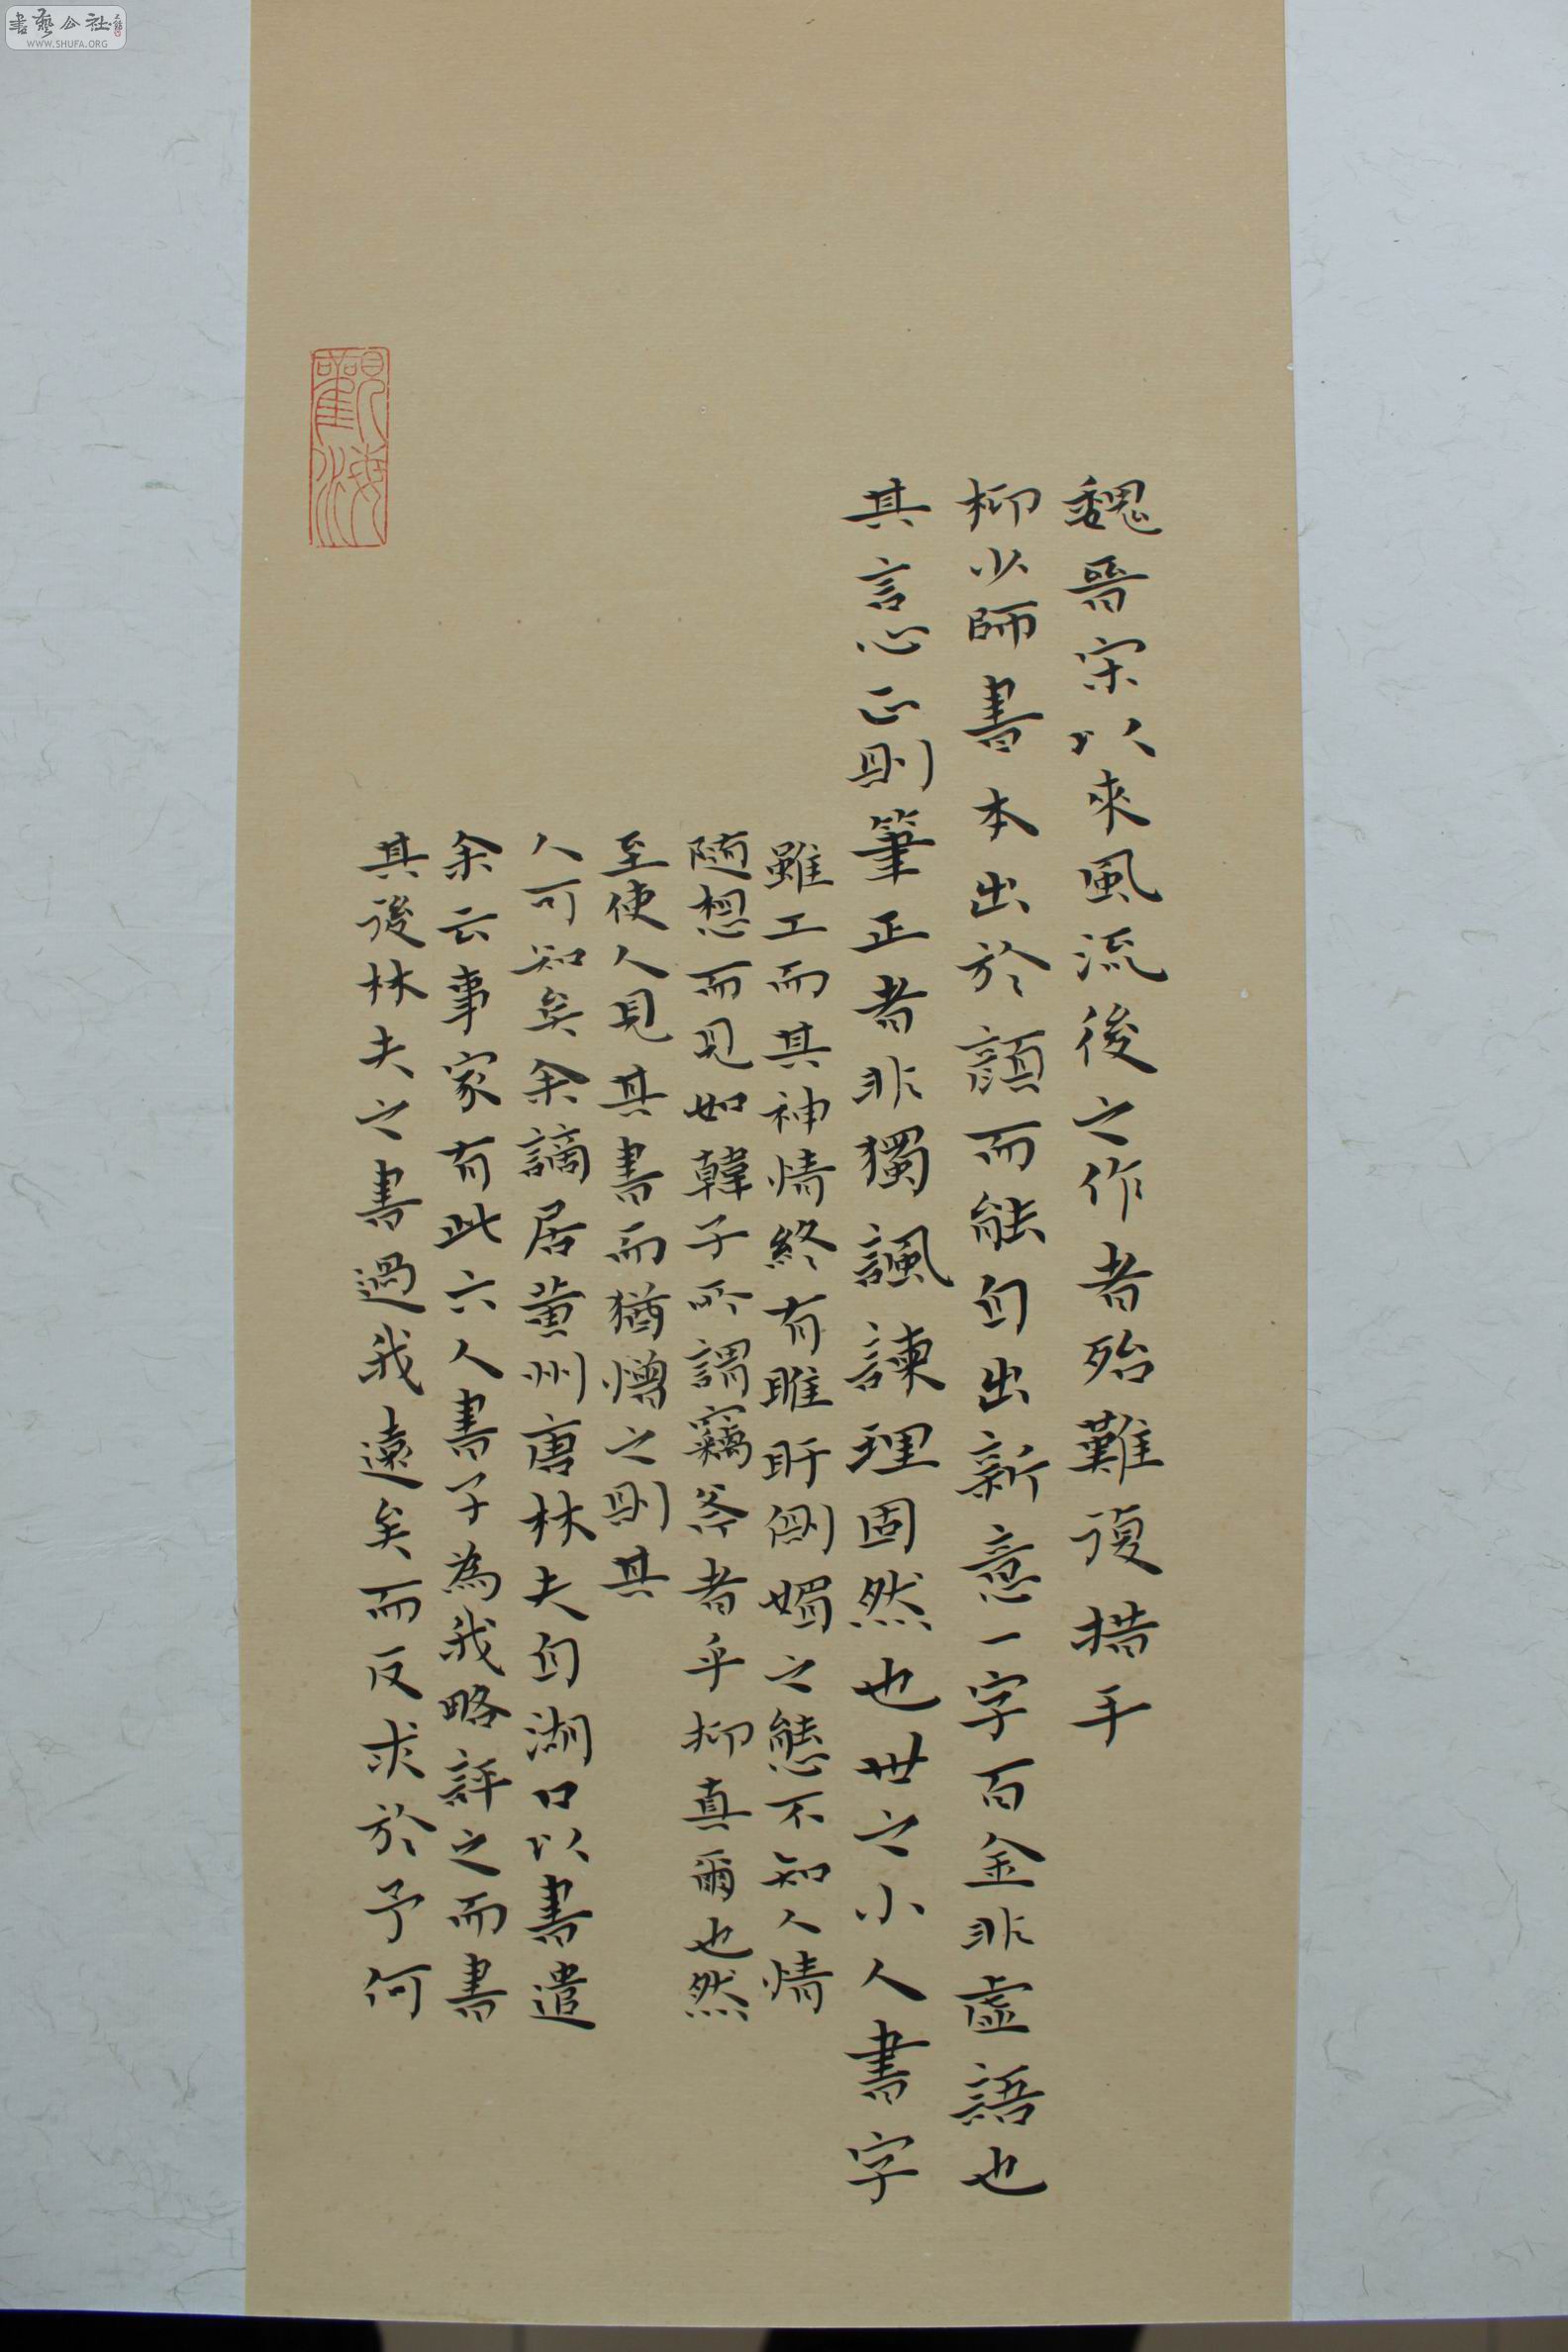 魏晉宋以來風流後之作者殆難復措手
柳少師書本出於顏而能自出新意一字百金非虛語也
其言心正則筆正者非獨諷諫理固然也世之小人書字
雖工而其神情終有睢盱側媚之態不知人情
隨想而見如韓子所謂竊斧者乎抑真爾也然
至使人見其書而猶憎之則其
人可知矣余謫居黃州唐林夫自湖口以書遺
余云事家有此六人書子為我略評之而書
其後林夫之書過我遠矣而反求於予何
觀海
書藝公社
WWW.SHUFA.ORG